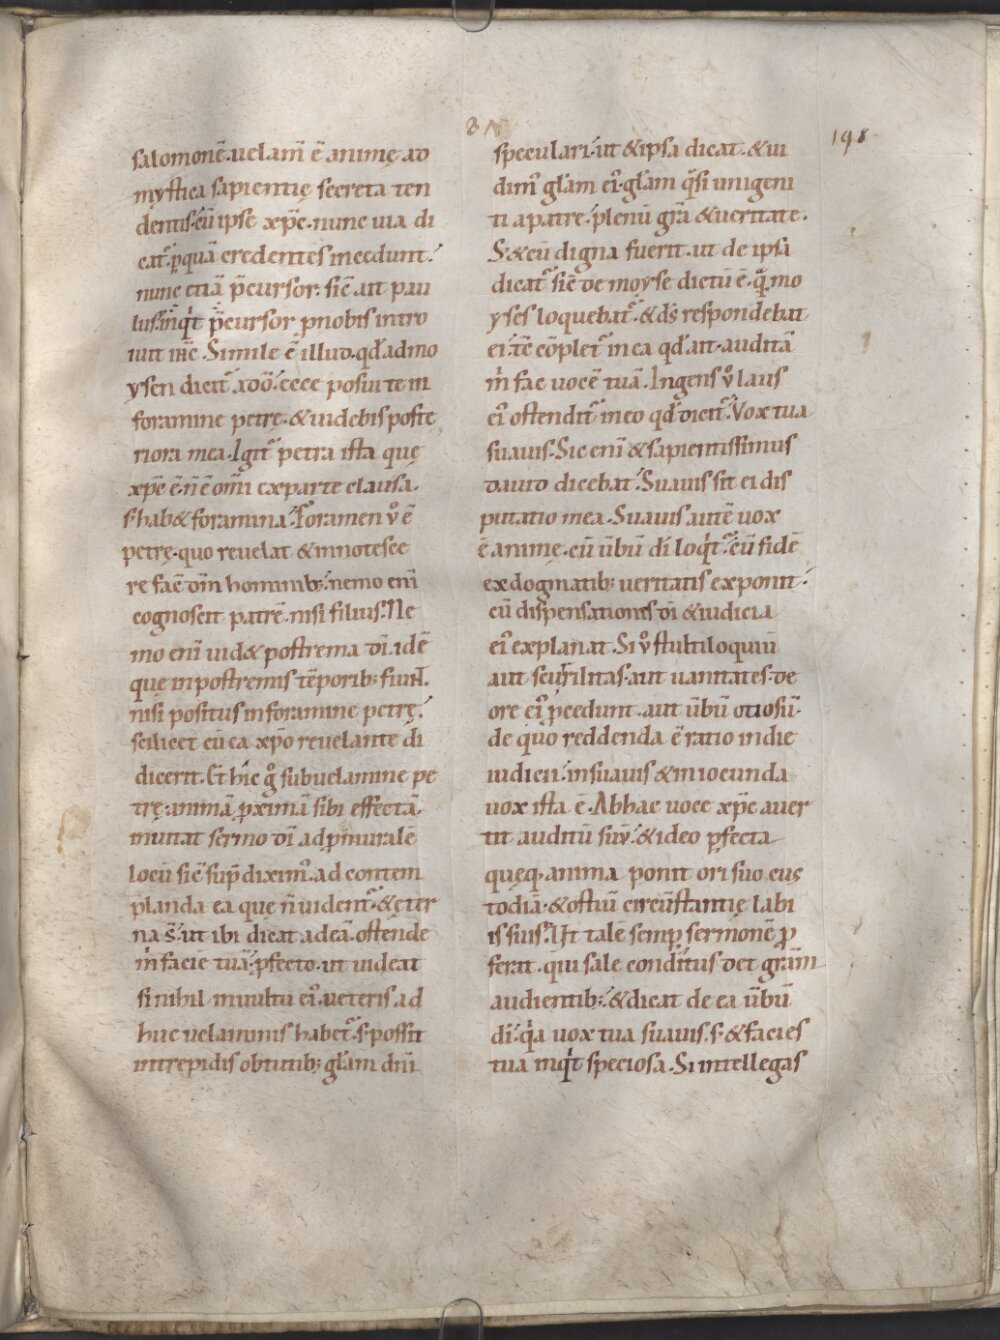 8
198
salomonē. uelam̄ ē animę ad
mystica sapientię secreta ten
dentis. cū ipse xp̄c. nunc uia di
cat᷑. ꝑquā credentes incedunt.
nunc etiā p̄cursor. sic̄ ait pau
lus. inqͥt p̄cursor ꝓnobis intro
iuit ih̄c. Simile ē illud. qd̓ ad mo
ysen dicit᷑ a dō. ecce posui te in
foramine petre. & uidebis poste
riora mea. Igit᷑ petra ista que
xp̄c ē. n̄ ē om̄i ex parte clausa.
s; hab& foramina. Foramen v̊ ē
petrę. quo reuelat & innotesce
re facē dm̄ hominib;. nemo eni̅
cognoscit patrē. nisi filius. Ne
mo eni̅ uid& postrema di̅. idē
que in postremis tēporib; fiunt.
nisi positus in foramine petrę.
scilicet cū ea xp̄o reuelante di
dicerit. Et hic g̊ sub uelamine pe
trę. animā ꝓximā sibi effectā.
inuitat sermo di̅ ad p̄muralē
locū sic̄ sup̄ diximꝰ. ad contem
planda ea que n̄ uident᷑. & ęter
na s̄. ut ibi dicat ad eā. ostende
m̊ faciē tuā. ꝓfecto. ut uideat
si nihil in uultu eiꝰ. ueteris ad
huc uelaminis habet᷑. s; possit
intrepidis obtutib; gl̄am dn̄i
speculari. ut & ipsa dicat. & ui
dimꝰ gl̄am eiꝰ. gl̄am qͣsi unigeni
ti a patre. plenū gr̄a & ueritate.
S; & cū digna fuerit. ut de ipsa
dicat᷑ sic̄ de moyse dictū ē. q̊ mo
yses loquebat᷑. & ds̄ respondebat
ei. tc̄ cōplet᷑ in ea qd̓ ait. auditā
m̊ fac uocē tuā. Ingens v̊ laus
eiꝰ ostendit᷑ in eo qd̓ dicit᷑. Vox tua
suauis. Sic eni̅ & sapientissimus
dauid dicebat. Suauis sit ei dis
putatio mea. Suauis autē uox
ē animę. cū ūbū di̅ loqͥt᷑. cū fidē
ex dogmatib; ueritatis exponit.
cū dispensationes di̅ & iudicia
eiꝰ explanat. Si v̊ stultiloquiū
aut scurilitas. aut uanitates. de
ore eiꝰ ꝓcedunt. aut ūbū otiosū.
de quo reddenda ē ratio in die
iudicii. insuauis & iniocunda
uox ista ē. Ab hac uoce xp̄c auer
tit auditū suū. & ideo ꝑfecta
quęq. anima ponit ori suo cus
todiā. & ostiū circūstantię labi
is suis. Ut talē semꝑ sermonē ꝓ
ferat. qui sale conditus det gr̄am
audientib;. & dicat de ea ūbū
di̅. qͥa uox tua suauis. s; & facies
tua inqͥt speciosa. Si intellegas